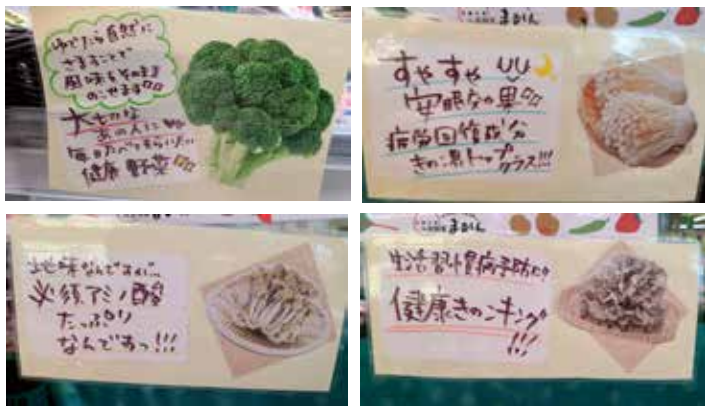 ゆでたら自然に
さますことで
風味をそのまま
のこせます!!
大切な
あの人に
毎日たべてもらいたい
健康野菜
まかん
すやすや
安眠効果!!
疲労回復成分
きの凍トップ
クラス!!!
地味なんですが…
必須アミノ酸
たっぷり
なんですっ!!!
まかん
生活習慣病予防に!!
健康きのこキング
!!!